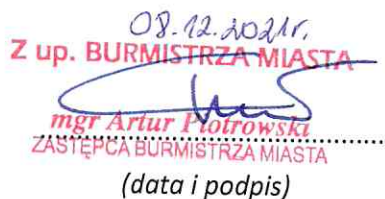 08.12.2021r.
Z up. BURMISTRZA MIASTA
mgr Artur Piotrowski
ZASTĘPCA BURMISTRZA MIASTA
(data i podpis)